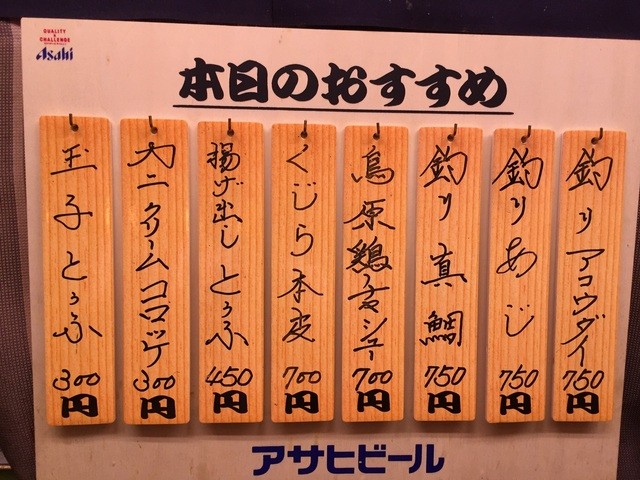 QUALITY
&
CHALLENGE
Asahi
本日のおすすめ
釣りアコウダイ 750円
釣りあじ 750円
釣り真鯛 750円
島原鶏チャーシュー 700円
くじら本皮 700円
揚げ出しとうふ 450円
カニクリームコロッケ 300円
玉子とうふ 300円
アサヒビール